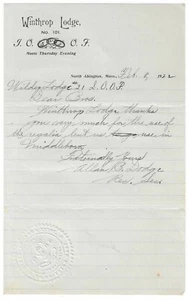 Winthrop Lodge,
No. 101,
I. O. O. F.
Meets Thursday Evening
North Abington, Mass., Feb. 2, 18
Wildey Lodge 21 I.O.O.F.
Dear Bros.
Winthrop Lodge thanks
you very much for the use of
the regalia lent us to go use in
Middleboro
Fraternally Yours
Allan B. Dodge
Rec. Sec.